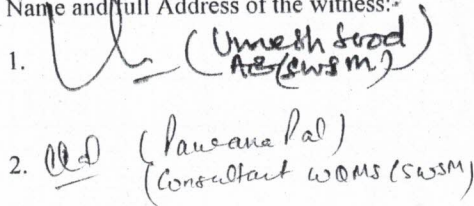 Name and full Address of the witness:-
1. (Umesh Sood)
AE(SWSM)
2. (Pawana Pal)
(Consultant WQMS (SWSM)